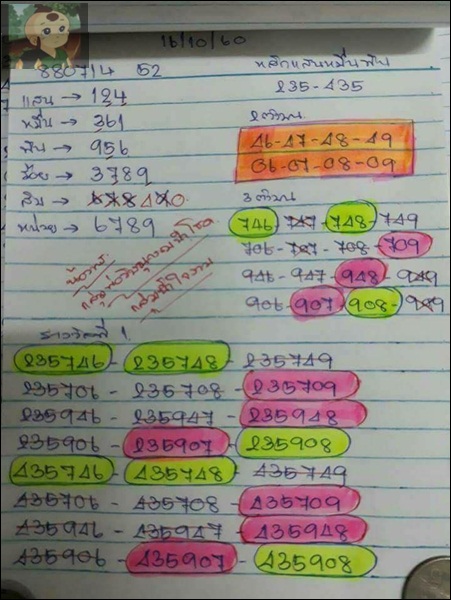 16/10/60
880714 52
หลักแสนหมื่นพัน
235-435
แสน → 124
หมื่น → 361
พัน → 956
ร้อย → 3789
สิบ → 678 4 0
หน่วย → 6789
2 ตัวบน
46-47-48-49
06-07-08-09
3 ตัวบน
746-747-748-749
706-707-708-709
946-947-948-949
906-907-908-909
รางวัลที่ 1
235746-235748-235749
235706-235708-235709
235946-235947-235948
235906-235907-235908
435746-435748-435749
435706-435708-435709
435946-435947-435948
435906-435907-435908